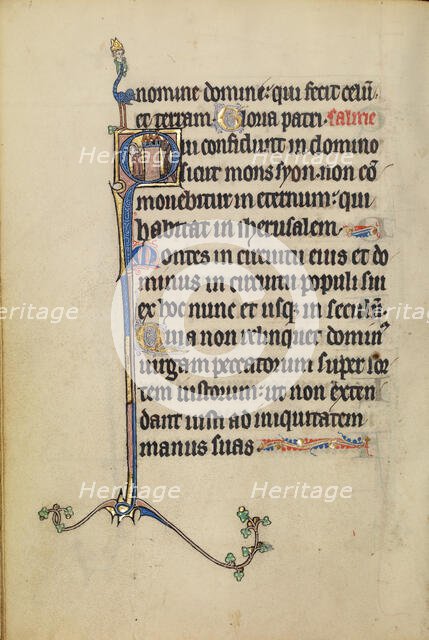 nomine domine: qui fecit celū
et terram. Gloria patri.
Qui confidunt in domino
sicut mons syon: non cō
mouebitur in eternum: qui
habitat in iherusalem.
Montes in circuitu eius et do
minus in circuitu populi sui
ex hoc nunc et usqȝ in seculū.
Quia non relinquet domin᷒
uirgam peccatorum super sor
tem iustorum: ut non exten
dant iusti ad iniquitatem
manus suas.
Heritage Heritage
Heritage Heritage
Heritage Heritage